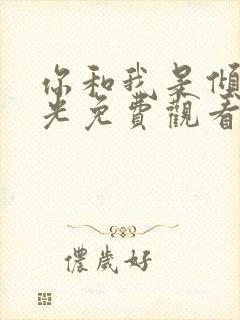 你和我呆傾
光免費觀看
儂歲好